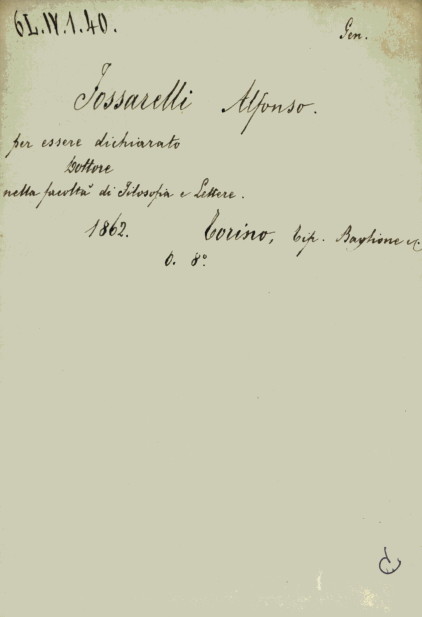 6L.IV.1.40.
Gen.
Fossarelli Alfonso.
per essere dichiarato
Dottore
nella facoltà di Filosofia e Lettere.
1862. Torino, Tip. Baglione &c
O. 8º.